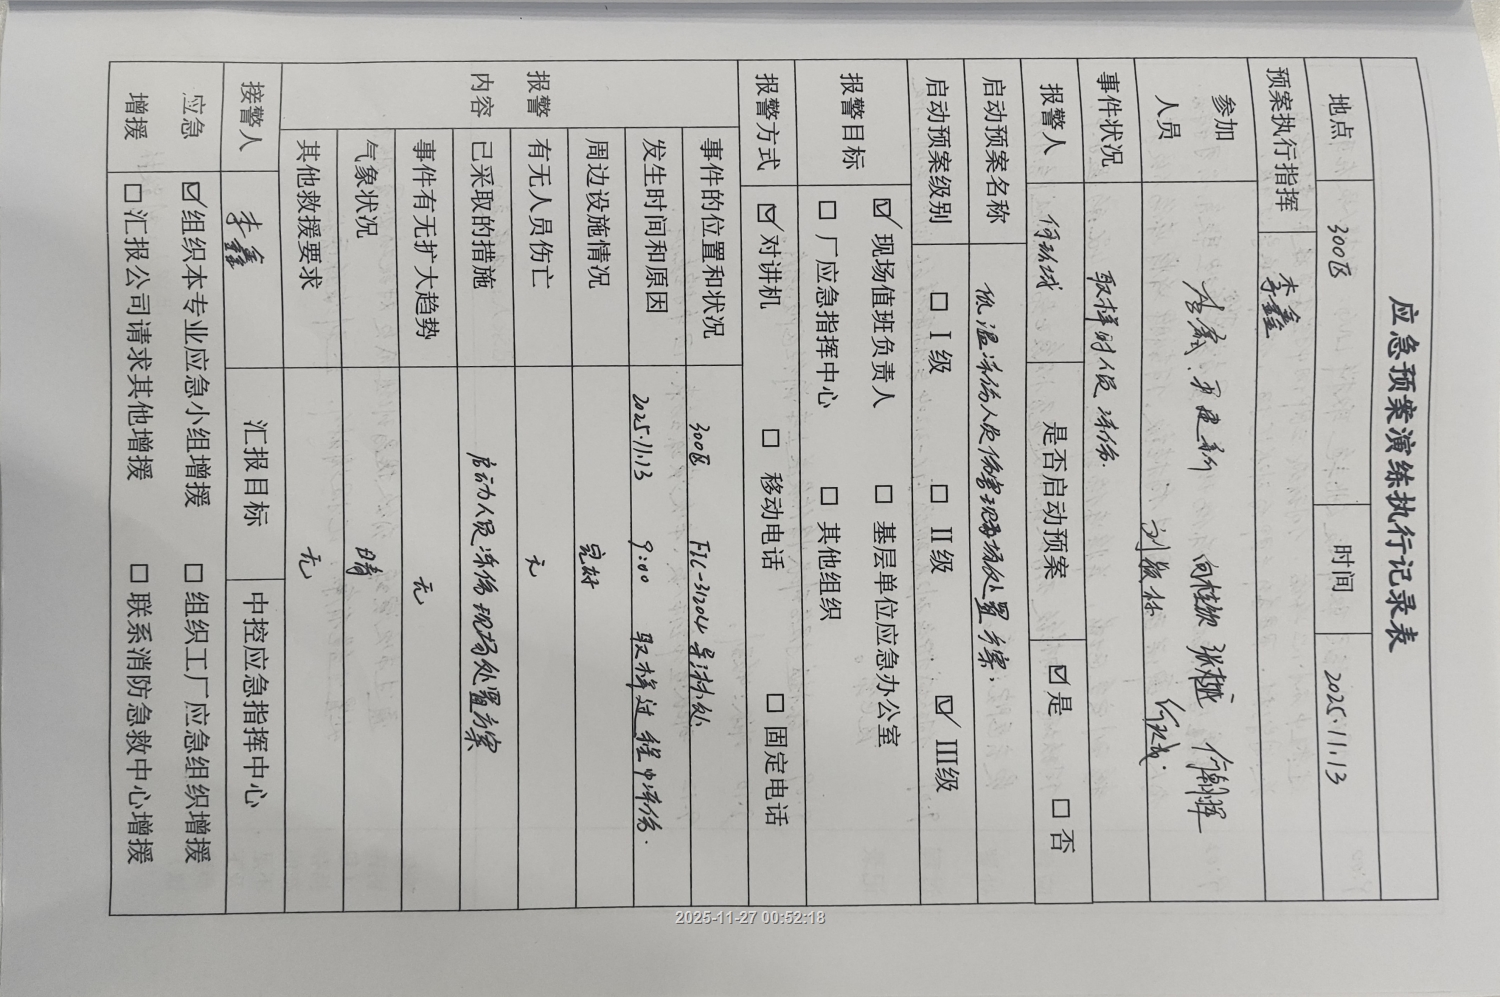 应急预案演练执行记录表
地点 300区 时间 2025.11.13
预案执行指挥 李鑫
参加人员 向桂钦 张樾
事件状况 取样时人员冻伤.
报警人 是否启动预案 ☑是 □否
启动预案名称 低温冻伤人员伤害现场处置方案.
启动预案级别 □ I 级 □ II 级 ☑ III级
报警目标 ☑现场值班负责人 □ 基层单位应急办公室
□ 厂应急指挥中心 □ 其他组织
报警方式 ☑对讲机 □ 移动电话 □ 固定电话
报警内容
事件的位置和状况 300区 FIC-31204 导淋处
发生时间和原因 2025.11.13 9:00 取样过程中冻伤.
周边设施情况 完好
有无人员伤亡 无
已采取的措施 启动人员冻伤现场处置方案
事件有无扩大趋势 无
气象状况 晴
其他救援要求 无
接警人 李鑫 汇报目标 中控应急指挥中心
应急增援 ☑组织本专业应急小组增援 □ 组织工厂应急组织增援
□汇报公司请求其他增援 □ 联系消防急救中心增援
2025-11-27 00:52:18